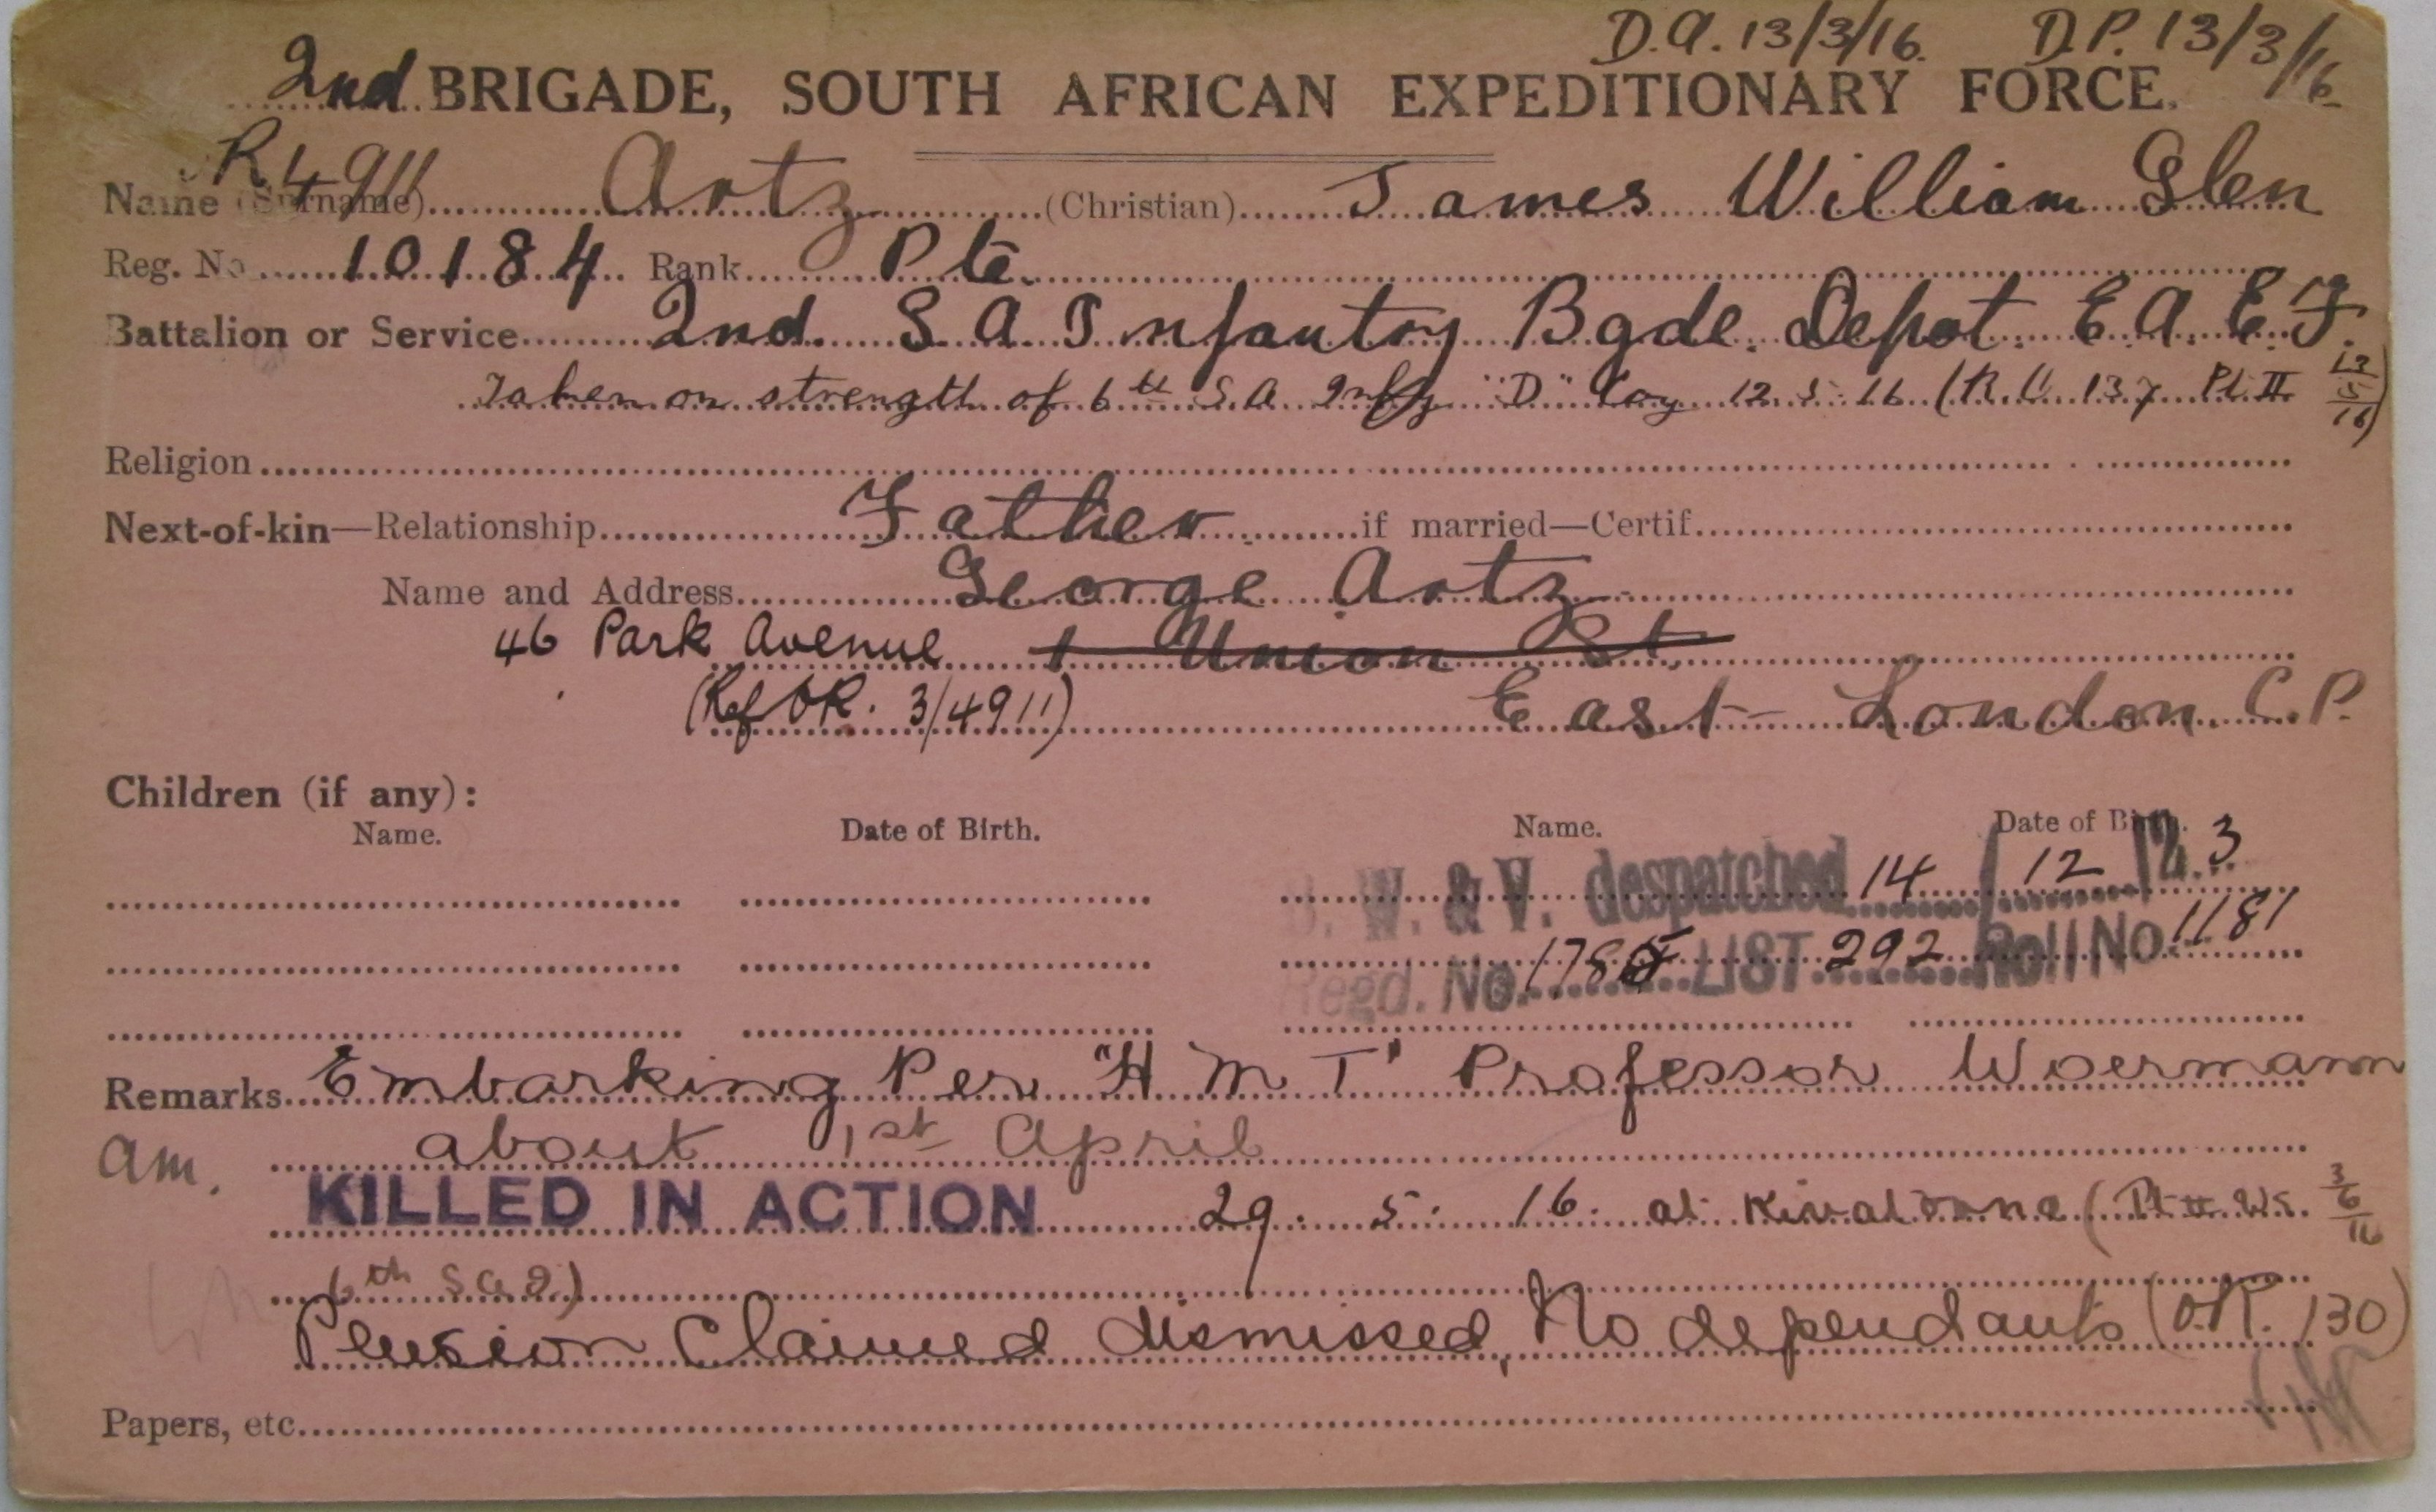 D.A. 13/3/16. D.P. 13/3/16
2nd BRIGADE, SOUTH AFRICAN EXPEDITIONARY FORCE.
R4911
Name (Surname) Artz (Christian) James William Glen
Reg. No 10184 Rank Pte.
Battalion or Service 2nd. S A Infantry Bgde. Depot. E. A. E. F.
Taken on strength of 6th S.A. Infy "D" Coy 12.5.16 (R.O. 137 Pt. II 13/5/16)
Religion
Next-of-kin—Relationship Father if married—Certif.
Name and Address George Artz
46 Park Avenue 1 Union St.
(Ref OR. 3/4911) East London. C.P.
Children (if any):
Name. Date of Birth. Name. Date of Birth.
B. W. & V. despatched 14/12/23
Regd. No. 178 LIST 292 Roll No. 1181
Remarks Embarking Per "H M T" Professor Woermann
am. about 1st April
KILLED IN ACTION 29. 5. 16. at (Pt II 3/6/16
6th S.A.I.)
Pension Claimed dismissed, No dependants (O.R. 130)
Papers, etc.